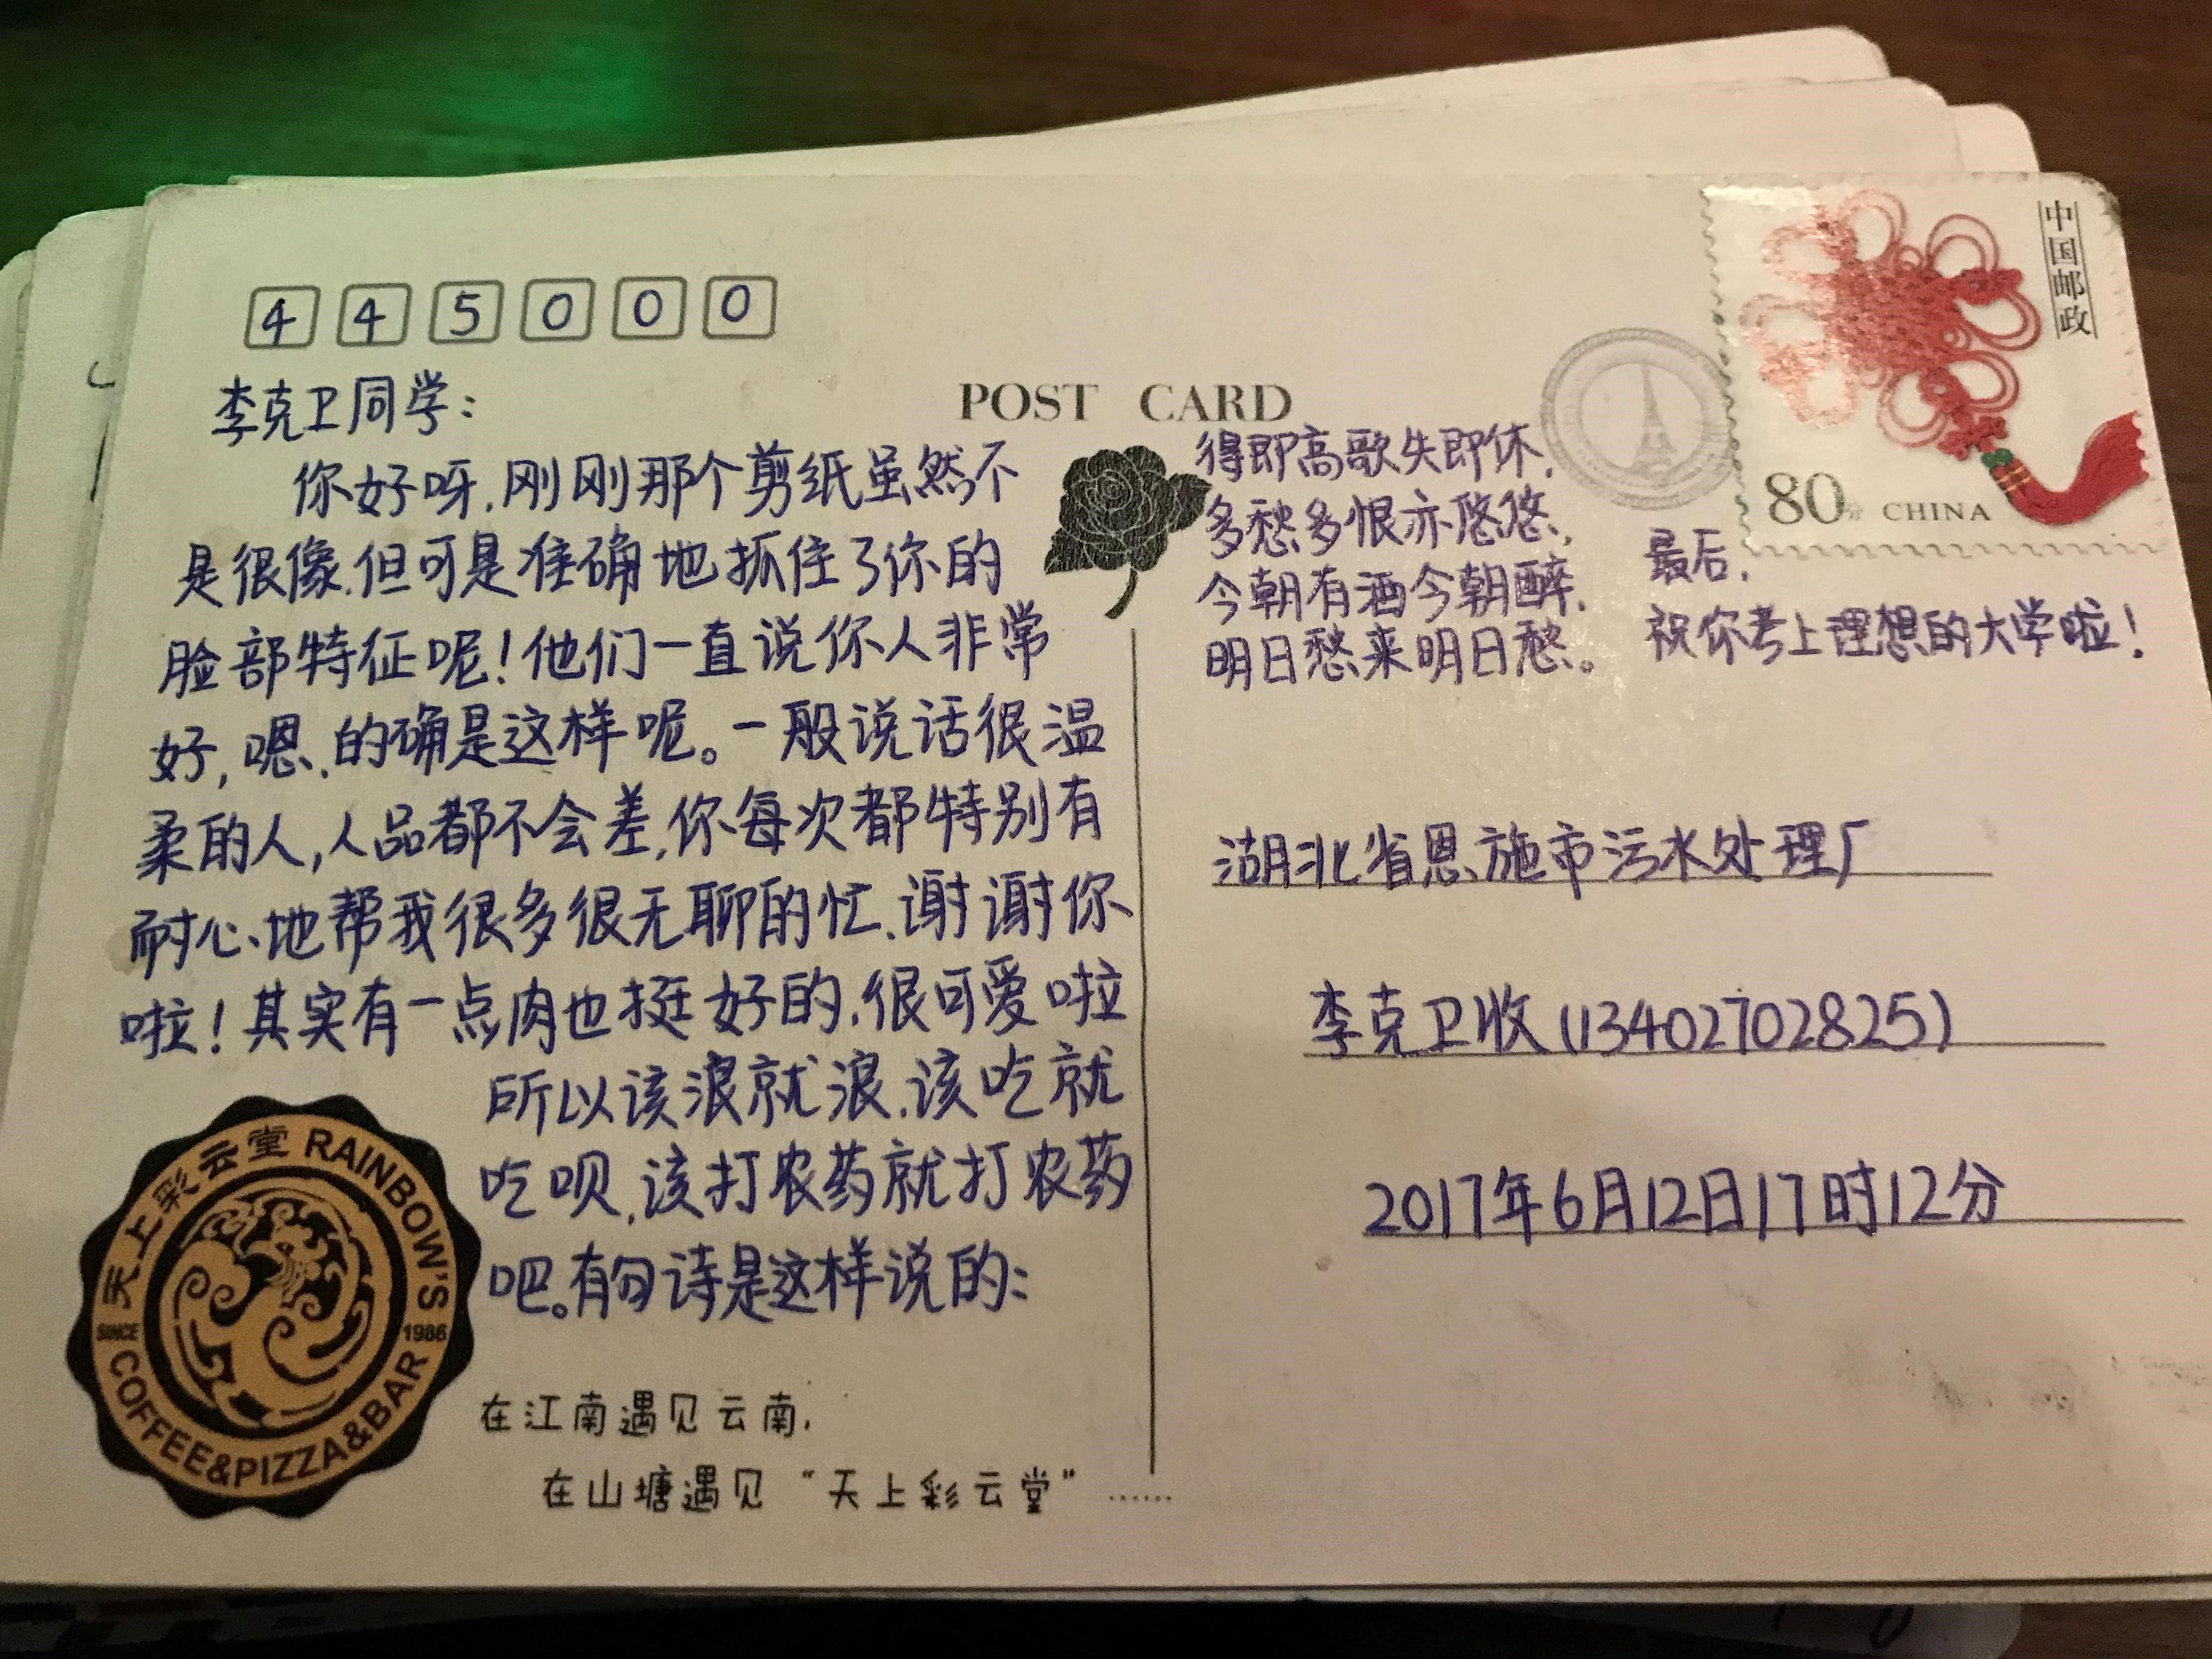 445000
李克卫同学：
你好呀，刚刚那个剪纸虽然不
是很像，但可是准确地抓住了你的
脸部特征呢！他们一直说你人非常
好，嗯，的确是这样呢。一般说话很温
柔的人，人品都不会差，你每次都特别有
耐心地帮我很多很无聊的忙，谢谢你
啦！其实有一点肉也挺好的，很可爱啦
所以该浪就浪，该吃就
吃呗，该打农药就打农药
吧。有句诗是这样说的：
天上彩云堂 RAINBOW'S
SINCE 1986
COFFEE&PIZZA&BAR
在江南遇见云南，
在山塘遇见“天上彩云堂”……
POST CARD
中国邮政
80分 CHINA
得即高歌失即休，
多愁多恨亦悠悠，
今朝有酒今朝醉，
明日愁来明日愁。
最后，
祝你考上理想的大学啦！
湖北省恩施市污水处理厂
李克卫收(13402702825)
2017年6月12日17时12分